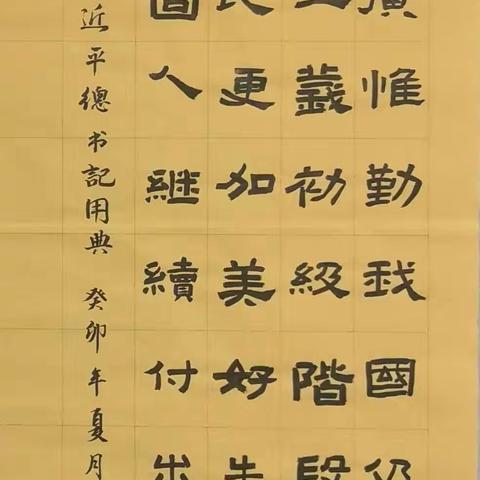 廣惟勤我國仍
義初級階段
民更加美好
人繼續付出
近平總书記用典 癸卯年夏月